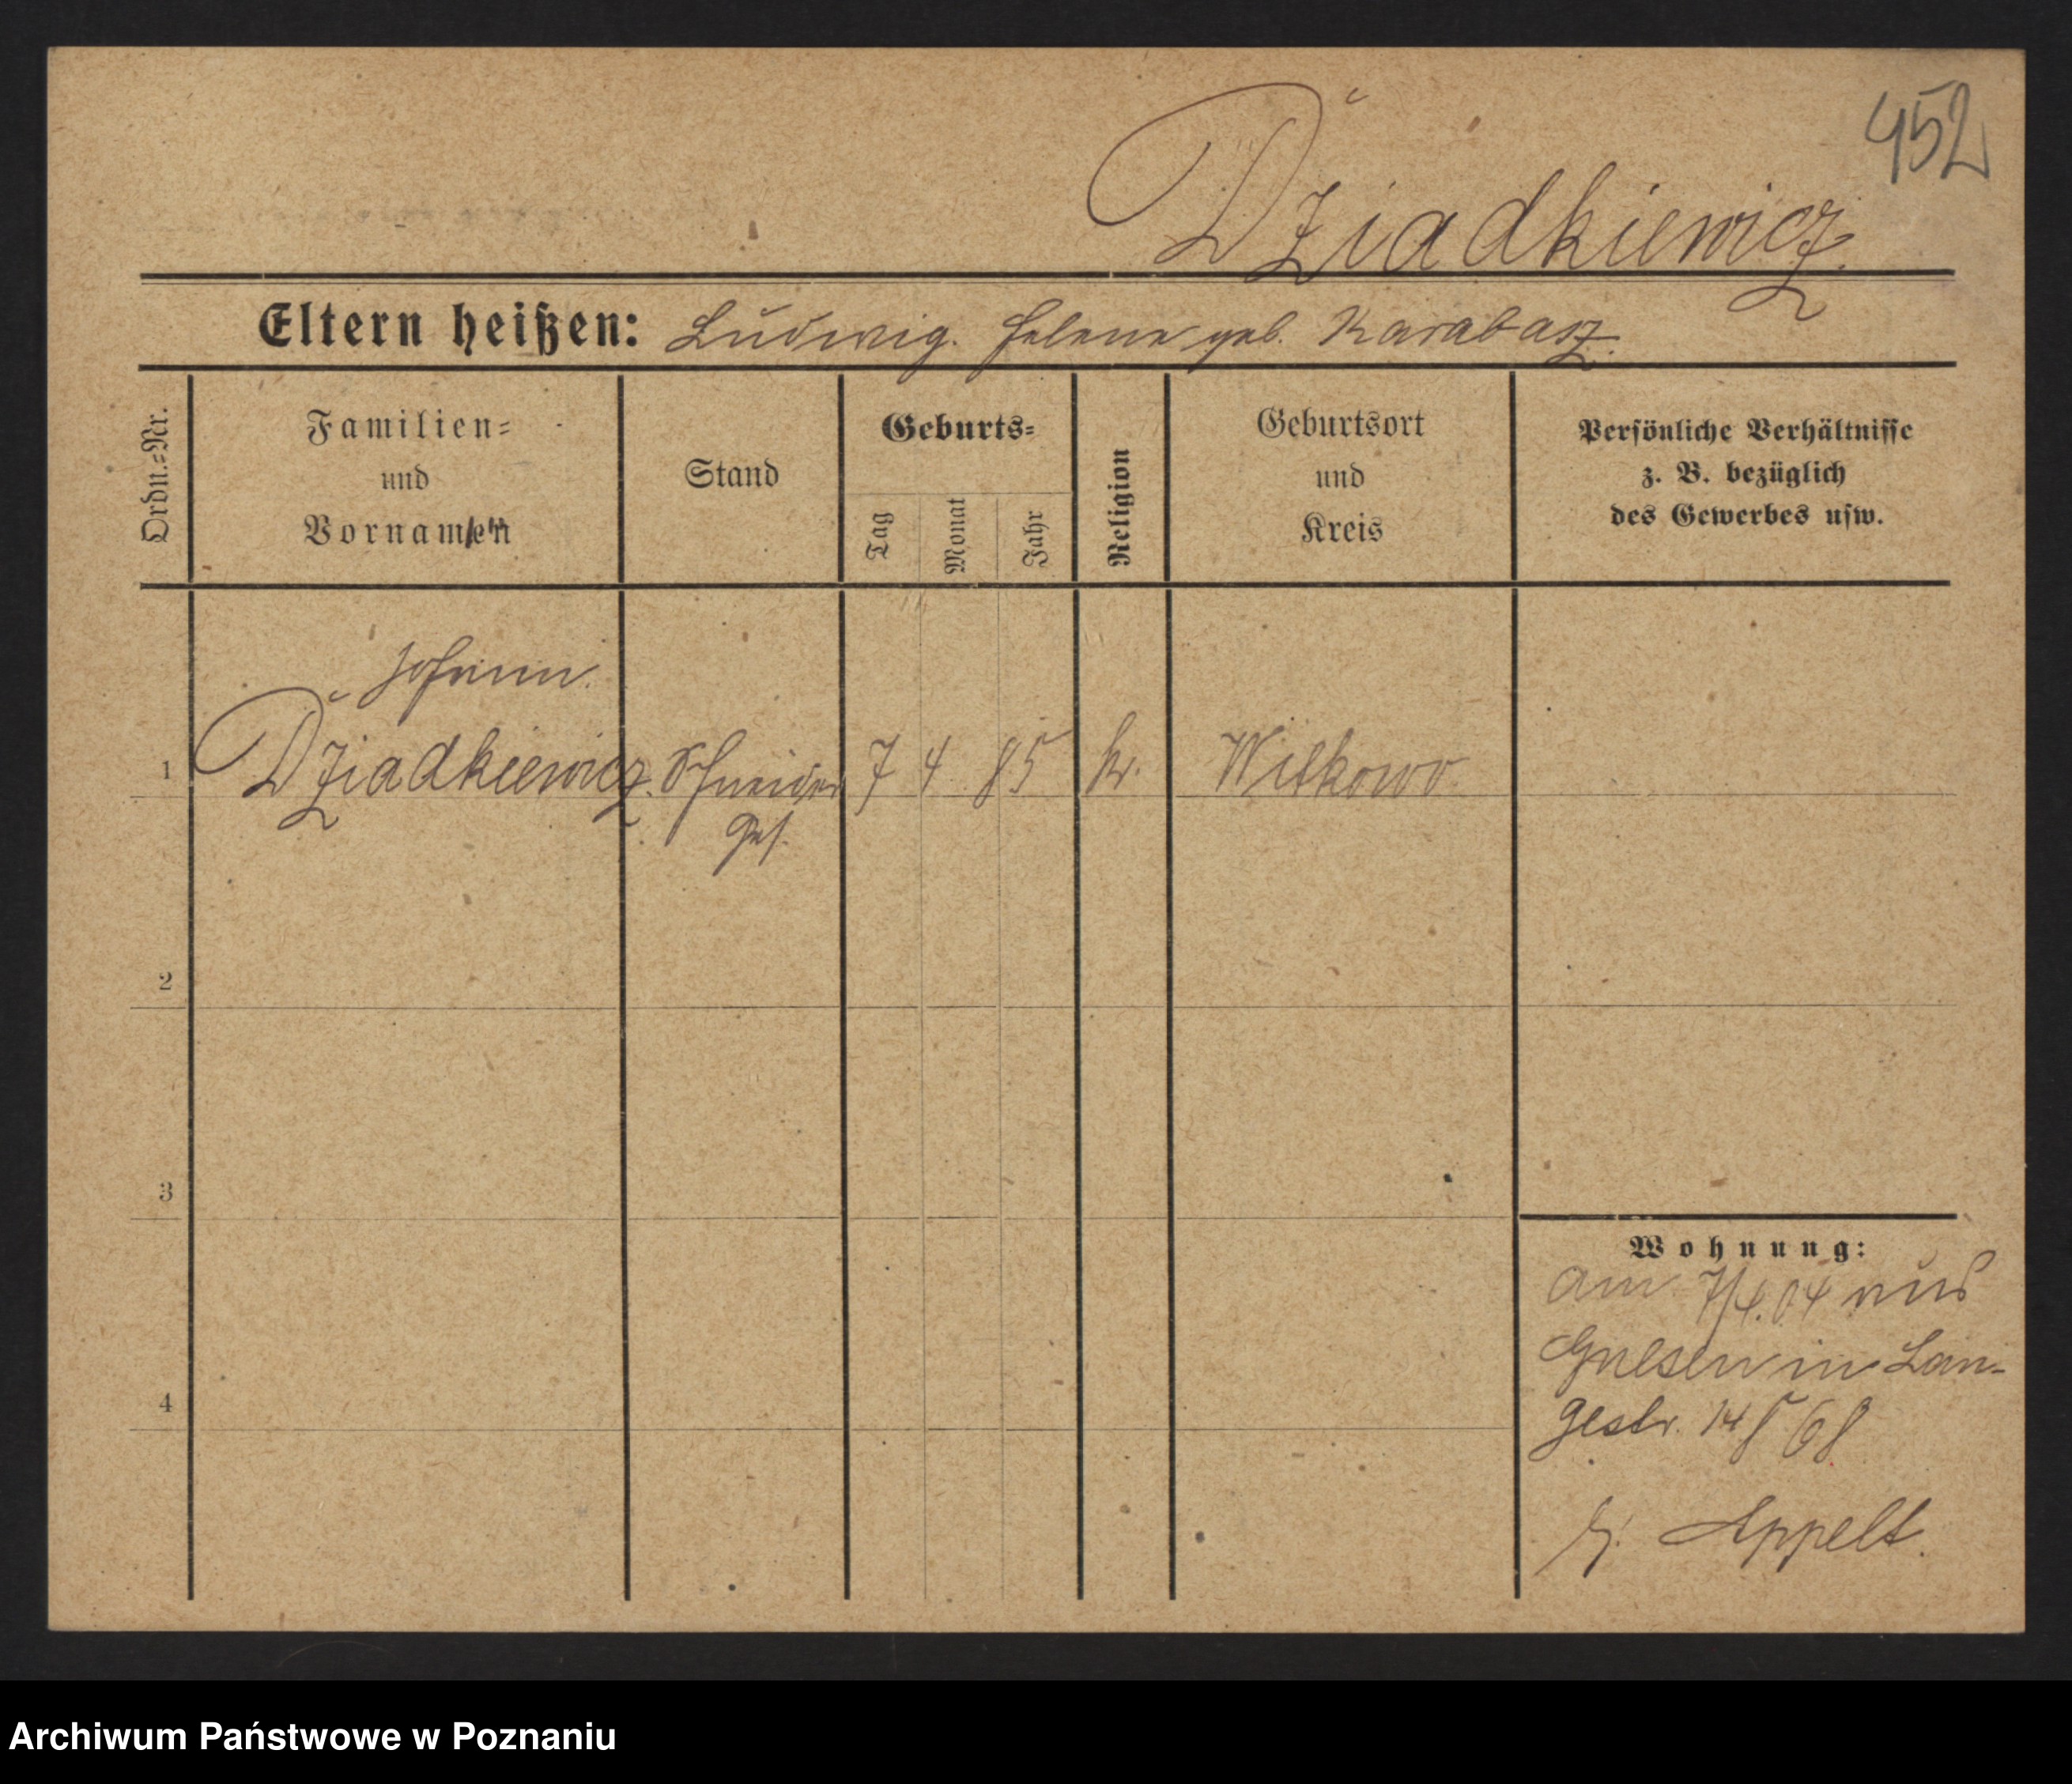 452
Dziadkiewicz.
Eltern heißen: Ludwig. Helene geb. Karabasz.
Ordn.=Nr.
Familien=
und
Vornamen
Stand
Geburts=
Tag
Monat
Jahr
Religion
Geburtsort
und
Kreis
Persönliche Verhältnisse
z. B. bezüglich
des Gewerbes usw.
Johann.
1 Dziadkiewicz. Schneider 7 4 85 k. Witkowo.
Ges.
2
3
4
Wohnung:
am 7/4.04 aus
Gnesen in Lan-
gestr. 14
Appelt.
Archiwum Państwowe w Poznaniu